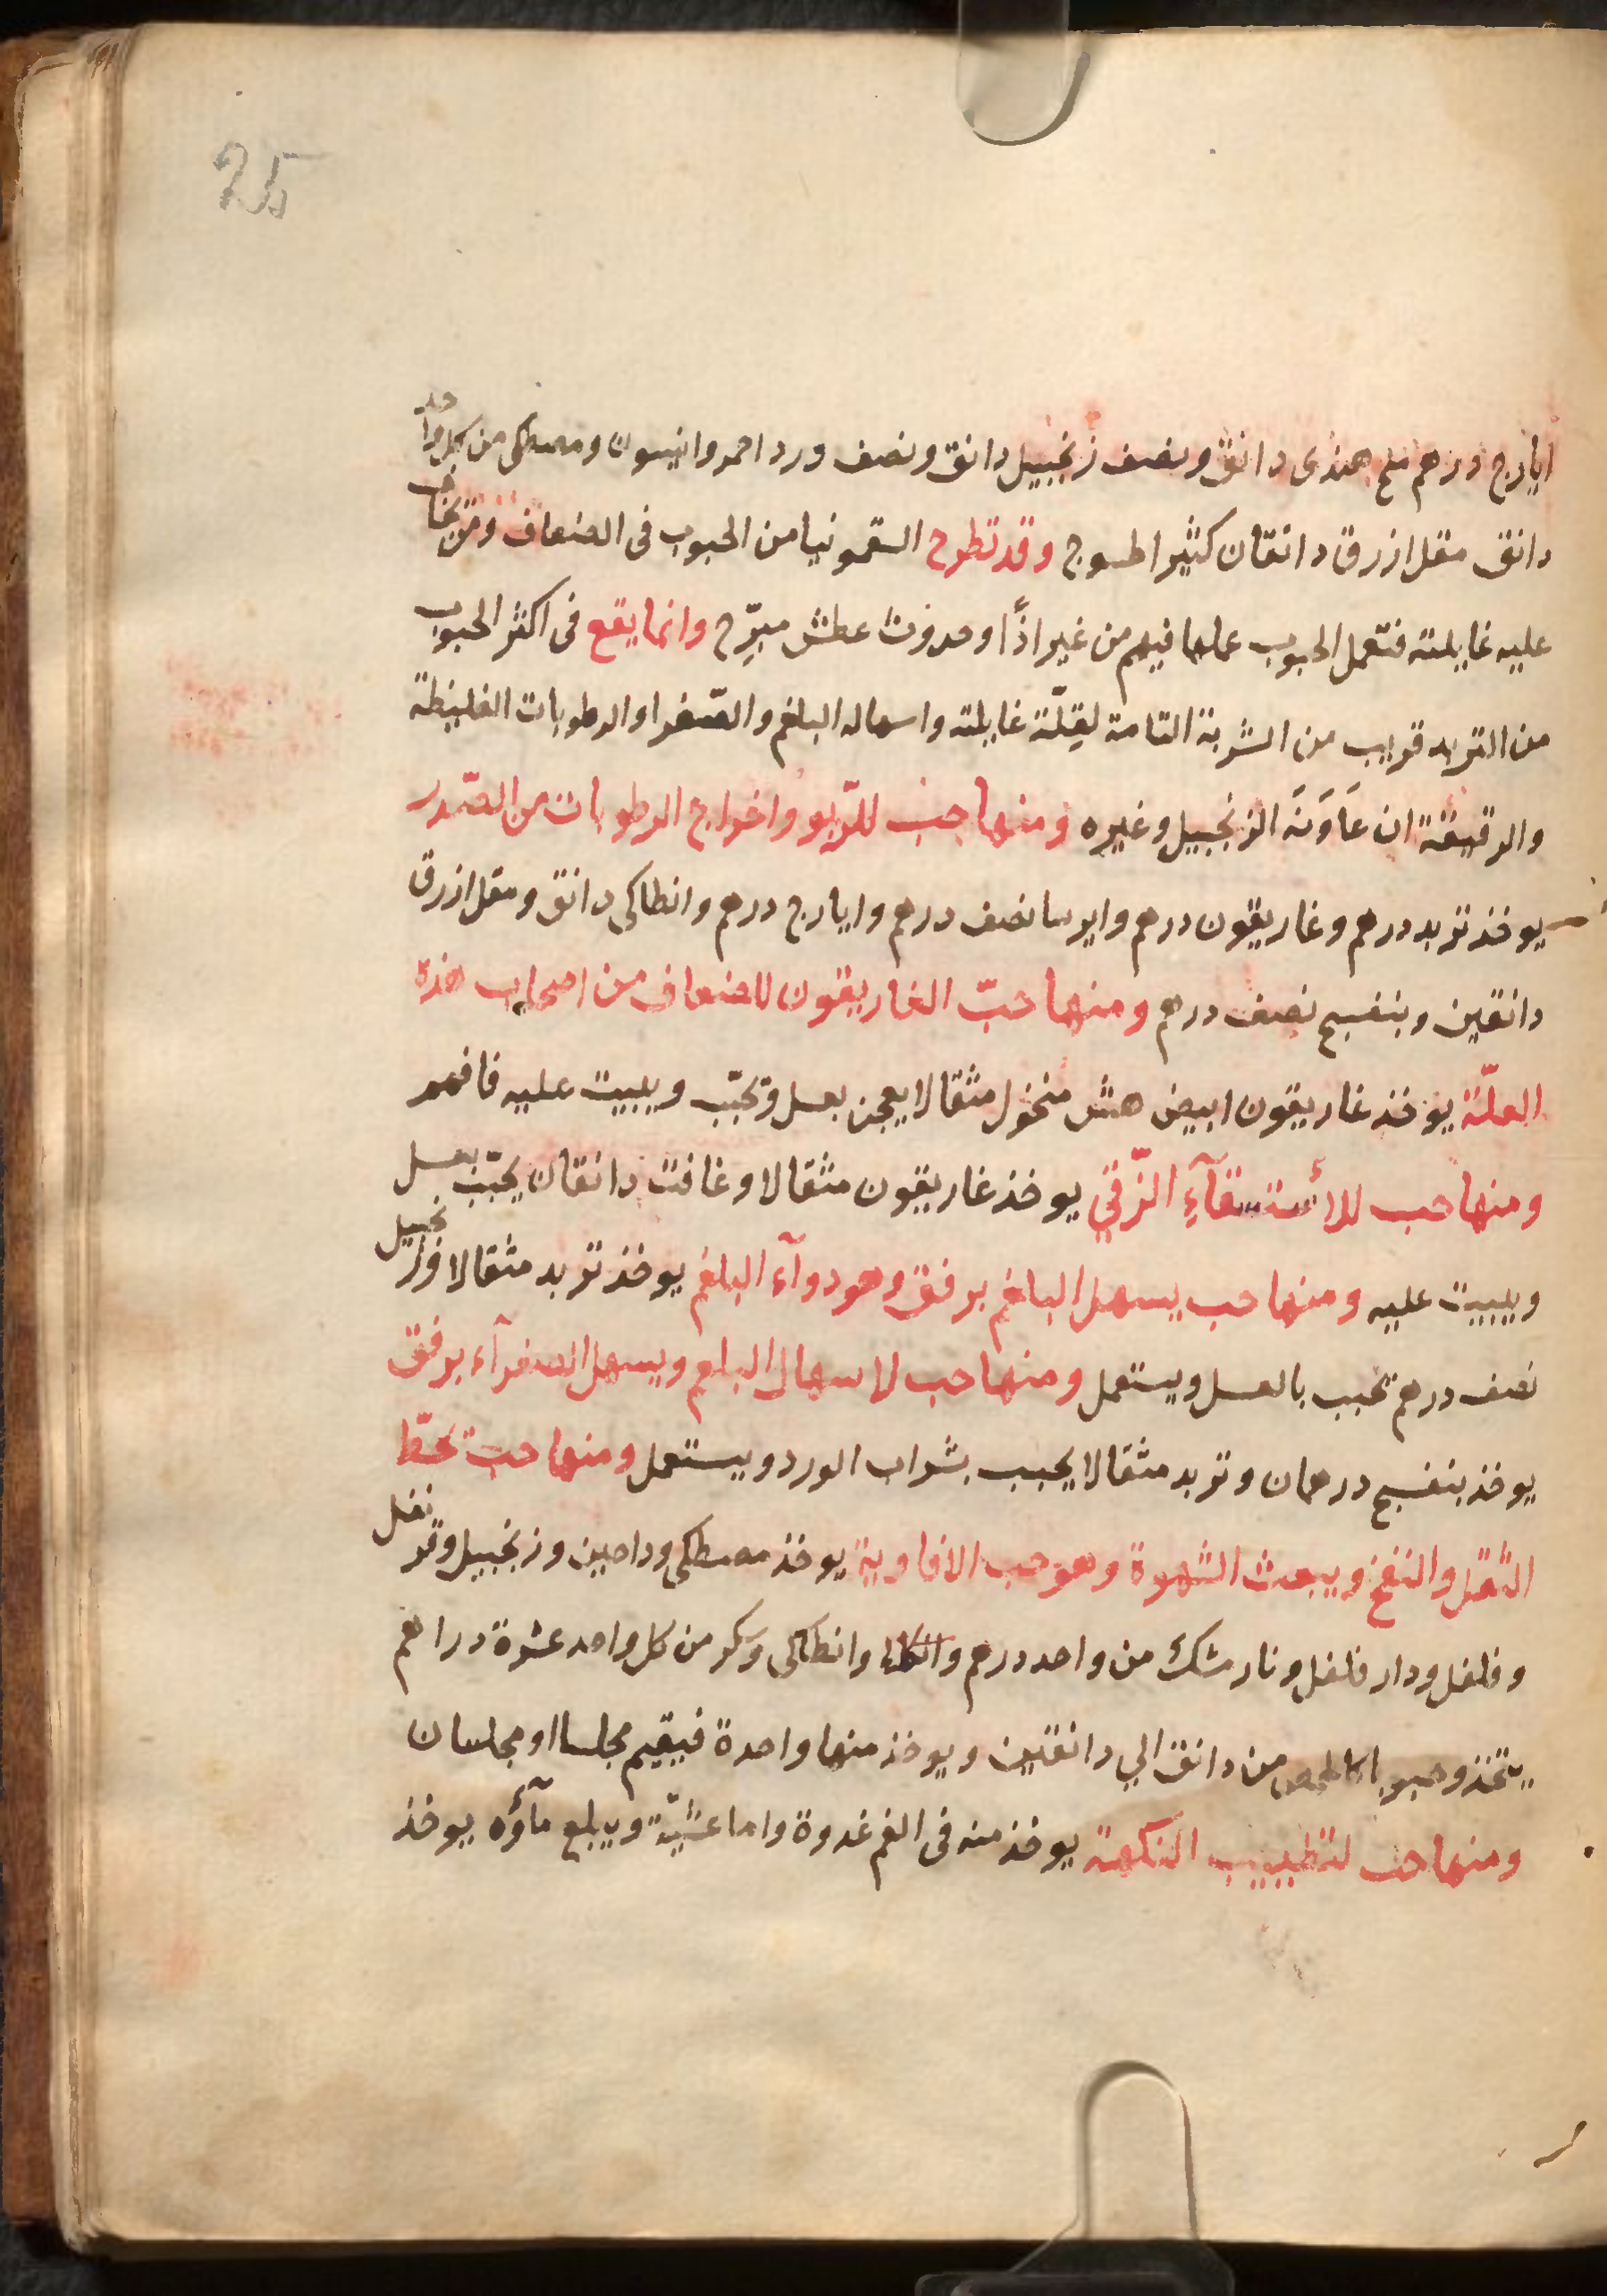 25
ايارج درهم ملح هندى دانق ونصف زنجبيل دانق ونصف ورد احمر وانيسون ومصطكى من كل واحد
دانق مقل ازرق دانقان كثيرا طسوج وقد تطرح السقمونيا من الحبوب فى الضعاف ومن يخاف
عليه غايلته فتعمل الحبوب عملها فيهم من غير اذًا وحدوث عطش مبرّح وانما يقع فى اكثر الحبوب
من التربد قريب من الشربة التامة لقلّة غايلته واسهاله البلغم والصّفرا والرطوبات الغليظة
والرقيقة ان عَاوَنَه الزنجبيل وغيره ومنها حب للرّبو واخراج الرطوبات من الصّدر
يوخذ تربد درهم وغاريقون درهم وايرسا نصف درهم وايارج درهم وانطاكى دانق ومقل ازرق
دانقين وبنفسج نصف درهم ومنها حبّ الغاريقون للضعاف من اصحاب هذه
العلّة يوخذ غاريقون ابيض هش منخول مثقالا يعجن بعسل وتحبّب ويبيت عليه فافهم
ومنها حب للأستسقآءِ الزّقي يوخذ غاريقون مثقالا وغافت دانقان يحبّب بعسل
ويبيت عليه ومنها حب يسهل البلغم برفق وهو دوآء البلغم يوخذ تربد مثقالا وزنجبيل
نصف درهم تحبب بالعسل ويستعمل ومنها حب لاسهال البلغم ويسهل الصفرآء برفق
يوخذ بنفسج درهمان وتربد مثقالا يحبب بشراب الورد ويستعمل ومنها حب تحطّ
الثّقل والنفخ ويبعث الشهوة وهو حب الافاوية يوخذ مصطكى ودارصين وزنجبيل وقرنفل
وفلفل ودار فلفل ونارمشك من واحد درهم وانطاكى وسكر من كل واحد عشرة دراهم
يتخذ وحبوبا كالحمص من دانق الي دانقين ويوخذ منها واحدة فيقيم مجلسا او مجلسان
ومنها حب لتطييب النكهة يوخذ منه فى الفم غدوة واما عشيّة ويبلع مآؤه يوخذ